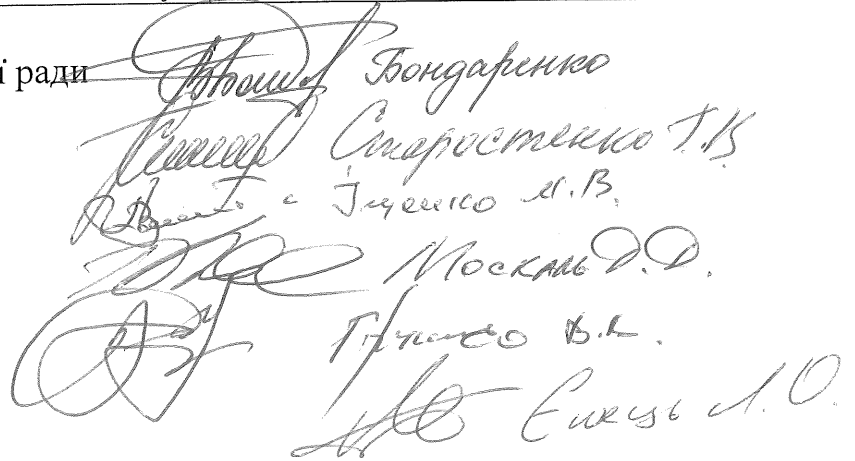 і ради Бондаренко
Старостенко Г.В
Іщенко М.В.
Москаль Д.Д.
В.В.
Єпець Л.О.